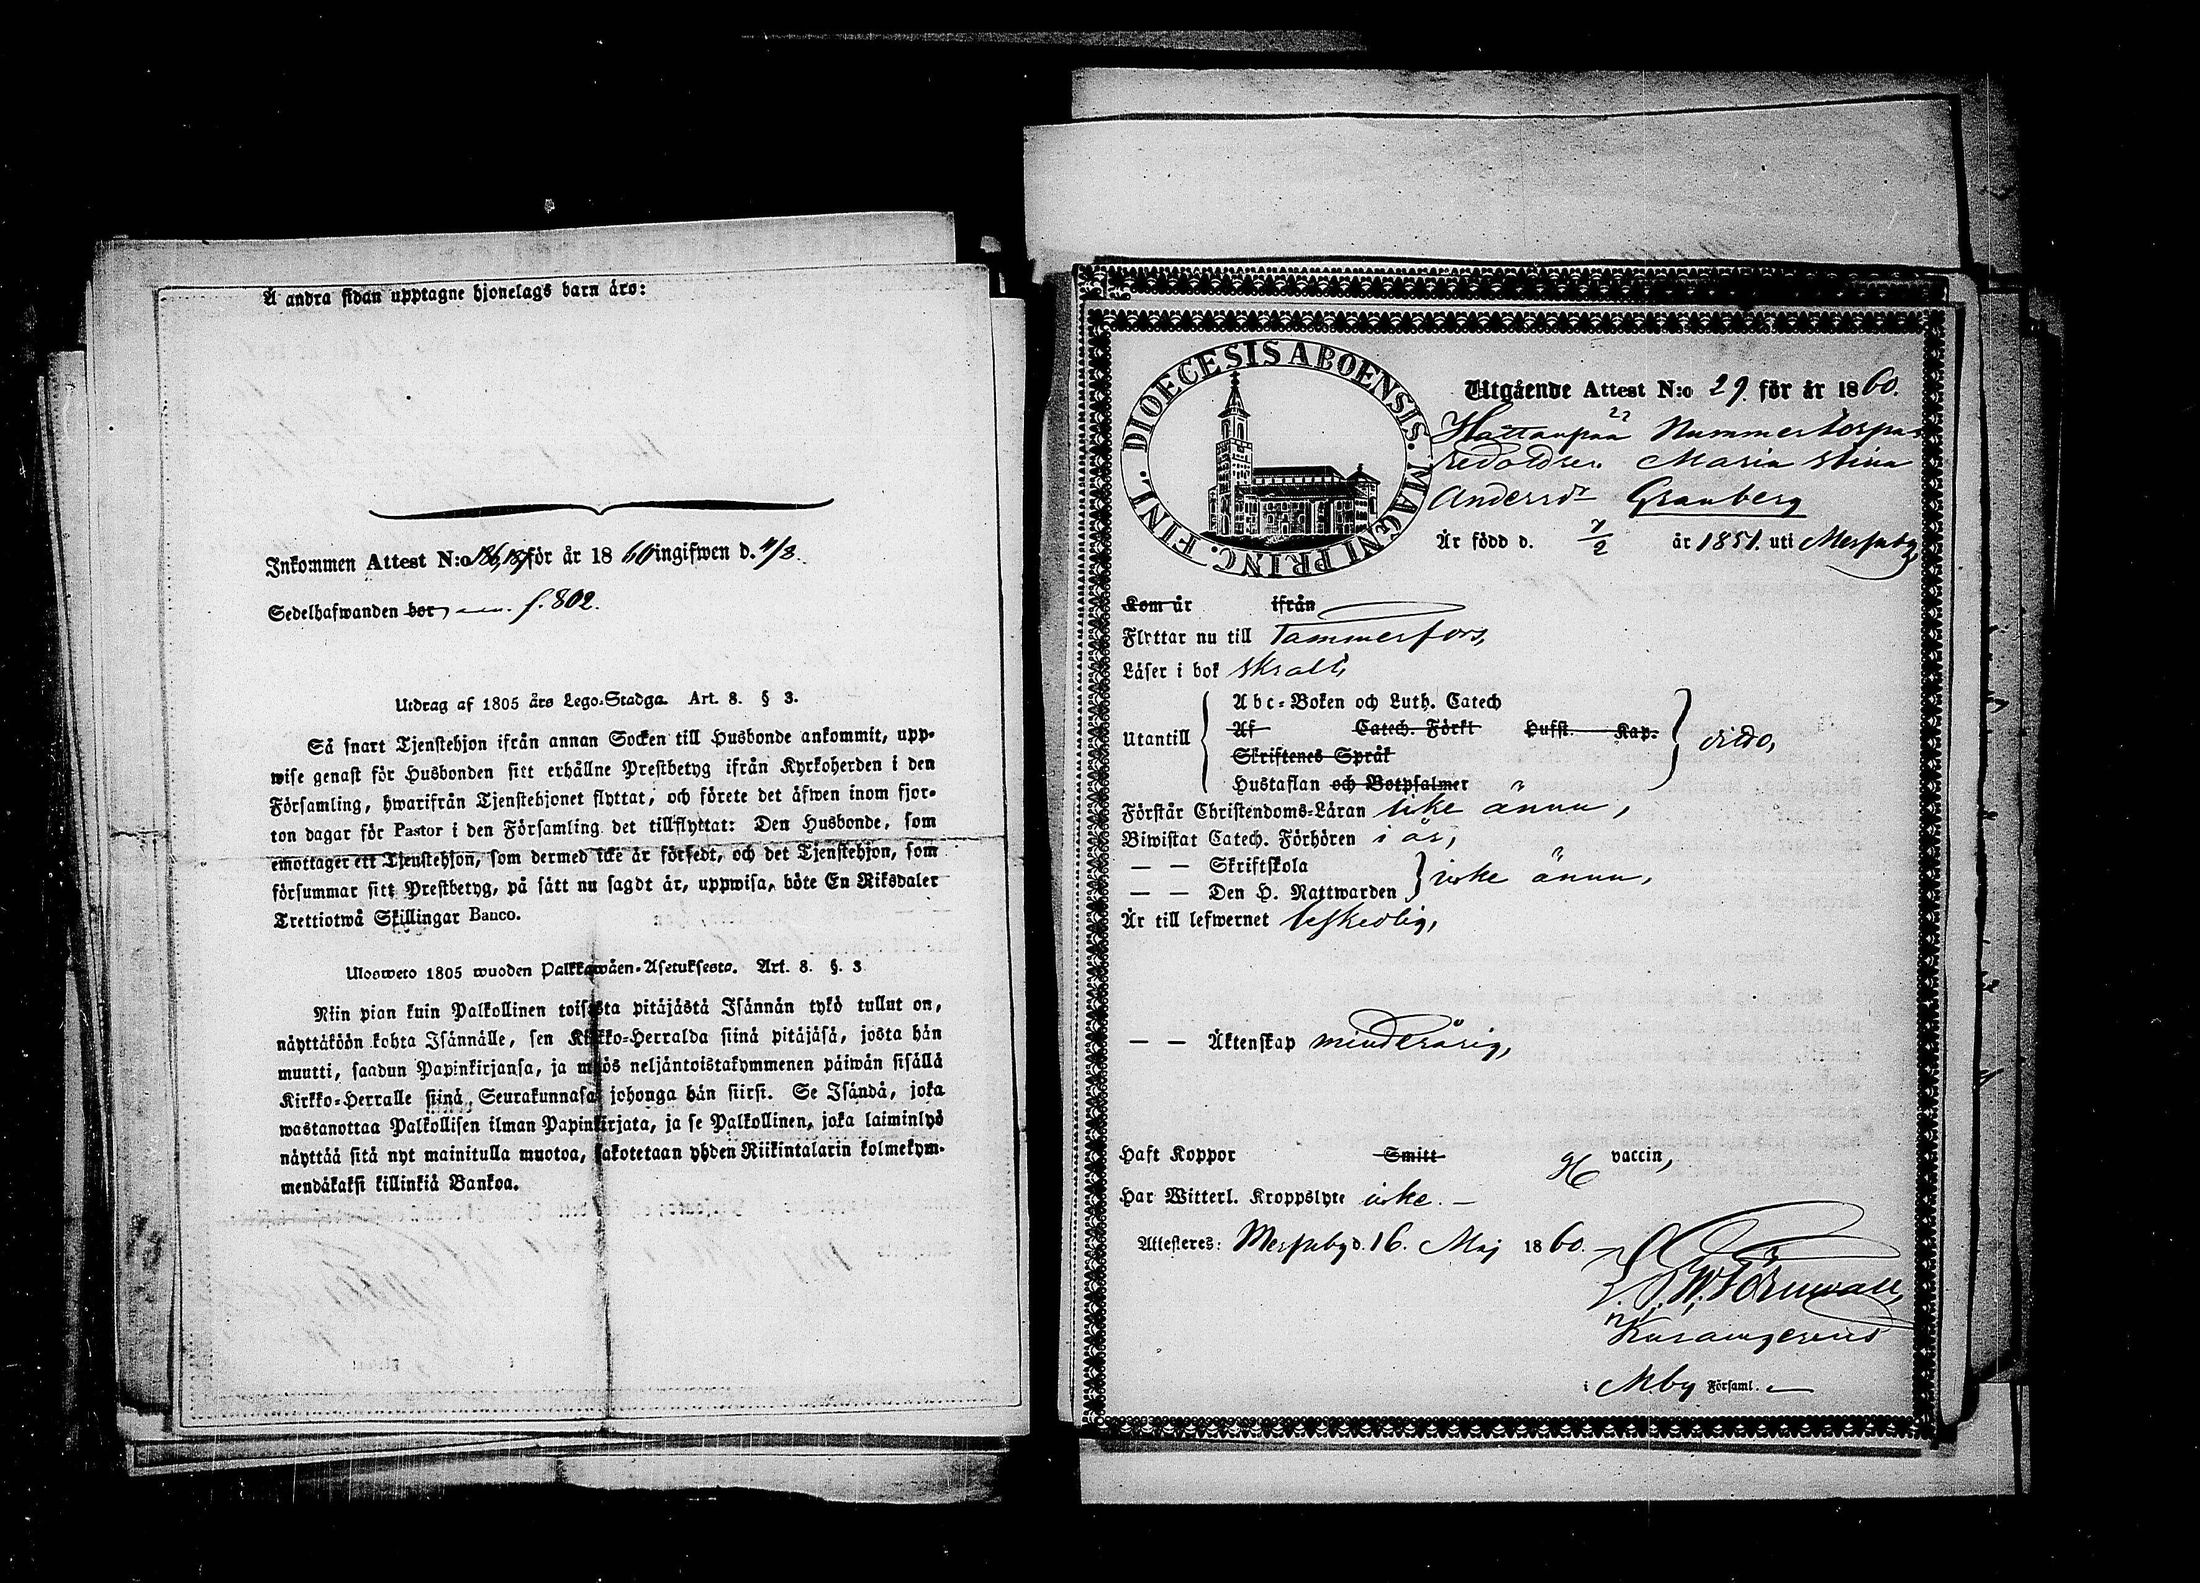 Å andra sidan upptagne hjonelags barn äro:
Inkommen Attest N:o 186,187 för år 1860 ingifwen d. 4/8.
Sedelhafwanden bor f. 802.
Utdrag af 1805 års Lego-Stadga. Art. 8. § 3.
Så snart Tjenstehjon ifrån annan Socken till Husbonde ankommit, upp-
wise genast för Husbonden sitt erhållne Prestbetyg ifrån Kyrkoherden i den
Församling, hwarifrån Tjenstehjonet flyttat, och förete det äfwen inom fjor-
ton dagar för Pastor i den Församling det tillflyttat: Den Husbonde, som
emottager ett Tjenstehjon, som dermed icke är försedt, och det Tjenstehjon, som
försummar sitt Prestbetyg, på sätt nu sagdt är, uppwisa, böte En Riksdaler
Trettiotwå Skillingar Banco.
Ulosweto 1805 wuoden Palkkawäen-Asetuksesta. Art. 8. §. 3
Niin pian kuin Palkollinen toisesta pitäjästä Isännän tykö tullut on,
näyttäköön kohta Isännälle, sen Kirkko-Herralda siinä pitäjäsä, josta hän
muutti, saadun Papinkirjansa, ja myös neljäntoistakymmenen päiwän sisällä
Kirkko-Herralle siinä Seurakunnasa johonga hän siirsi. Se Isändä, joka
wastanottaa Palkollisen ilman Papinkirjata, ja se Palkollinen, joka laiminlyö
näyttää sitä nyt mainitulla muotoa, sakotetaan yhden Riikintalarin kolmekym-
mendäkaksi killinkiä Bankoa.
DIOECESIS ABOENSIS. MAGNI PRINC. FINL.
Utgående Attest N:o 29. för år 1860.
Hattanpää Nummertorpa-
Maria Stina
Andersdr Granberg
Är född d. 7/2 år 1851. uti Messuby
Kom år ifrån
Flyttar nu till Tammerfors,
Läser i bok skralt,
Abc-Boken och Luth. Catech
Utantill Af Catech. Förkl Hufst. Kap. ditto,
Skriftenes Språk
Hustaflan och Botpsalmer
Förstår Christendoms-Läran icke ännu,
Biwistat Catech. Förhören i år,
— — Skriftskola
— — Den H. Nattwarden icke ännu,
Är till lefwernet beskedlig,
— — Äktenskap minderårig,
Haft Koppor Smitt vaccin,
Har Witterl. Kroppslyte icke. —
Attesteres: Messuby d. 16. Maj 1860.
W. Törnwall,
i Mby Församl.